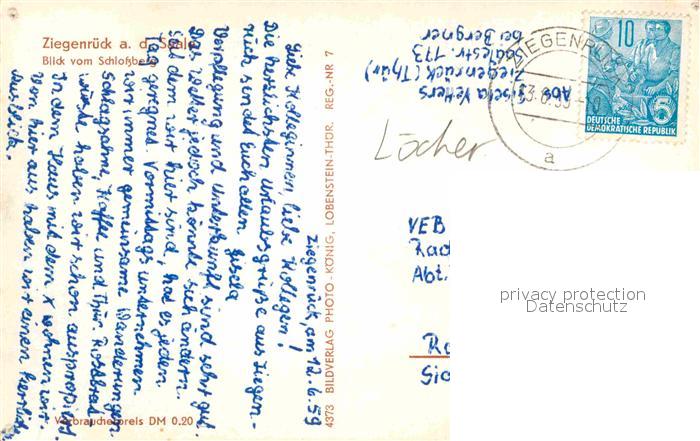 Ziegenrück a. d. Saale
Blick vom Schloßberg
Ziegenrück, am 12.6.59
Liebe Kolleginnen, liebe Kollegen!
Die herzlichsten Urlaubsgrüße aus Ziegen-
rück sendet Euch allen
Gisela
Verpflegung und Unterkunft sind sehr gut.
Das Wetter jedoch könnte sich ändern.
Seit dem wir hier sind, hat es jeden
Tag geregnet. Vormittags unternehmen
wir immer gemeinsame Wanderungen.
Schlagsahne, Kaffee und Thür. Rostbrat-
würste haben wir schon ausprobiert.
In dem Haus mit dem x wohnen wir.
Von hier aus haben wir einen herrlich.
Ausblick.
Verbraucherpreis DM 0.20
4373 BILDVERLAG PHOTO-KÖNIG, LOBENSTEIN-THÜR. REG.-NR 7
Abs. Gisela Vetters
Ziegenrück (Thür)
173
bei Bergner
ZIEGENRÜCK
a
10
5
DEUTSCHE
DEMOKRATISCHE REPUBLIK
Löcher
VEB
Rad
Abt.
privacy protection
Datenschutz